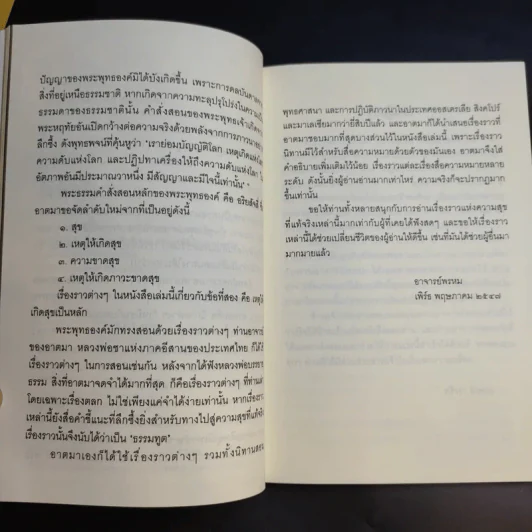 ปัญญาของพระพุทธองค์มิได้บังเกิดขึ้น เพราะการดลบันดาล
สิ่งที่อยู่เหนือธรรมชาติ หากเกิดจากความทะลุปรุโปร่งใน
ธรรมดาของธรรมชาตินั้น คำสั่งสอนของพระพุทธเจ้าเกิด
พระหฤทัยอันเปิดกว้างต่อความจริงด้วยพลังจากการภาวนา
ลึกซึ้ง ดังพุทธพจน์ที่คุ้นหูว่า "เราย่อมบัญญัติโลก เหตุเกิดแห่งโลก
ความดับแห่งโลก และปฏิปทาเครื่องให้ถึงความดับแห่งโลก
อัตภาพอันมีประมาณวาหนึ่ง มีสัญญาและมีใจนี้เท่านั้น"
พระธรรมคำสั่งสอนหลักของพระพุทธองค์ คือ อริยสัจสี่
อาตมาขอจัดลำดับใหม่จากที่เป็นอยู่ดังนี้
๑. สุข
๒. เหตุให้เกิดสุข
๓. ความขาดสุข
๔. เหตุให้เกิดภาวะขาดสุข
เรื่องราวต่างๆ ในหนังสือเล่มนี้เกี่ยวกับข้อที่สอง คือ เหตุให้
เกิดสุขเป็นหลัก
พระพุทธองค์มักทรงสอนด้วยเรื่องราวต่างๆ ท่านอาจารย์
ของอาตมา หลวงพ่อชาแห่งภาคอีสานของประเทศไทย ก็ได้
เรื่องราวต่างๆ ในการสอนเช่นกัน หลังจากได้ฟังหลวงพ่อบรรยาย
ธรรม สิ่งที่อาตมาจดจำได้มากที่สุด ก็คือเรื่องราวต่างๆ ที่ท่าน
โดยเฉพาะเรื่องตลก ไม่ใช่เพียงแค่จำได้ง่ายเท่านั้น หากเรื่องราว
เหล่านี้ยังสื่อคำชี้แนะที่ลึกซึ้งยิ่งสำหรับทางไปสู่ความสุขที่แท้จริง
เรื่องราวนั้นจึงนับได้ว่าเป็น 'ธรรมทูต'
อาตมาเองก็ได้ใช้เรื่องราวต่างๆ รวมทั้งนิทานสอน
พุทธศาสนา และการปฏิบัติภาวนาในประเทศออสเตรเลีย สิงคโปร์
และมาเลเซียมากว่ายี่สิบปีแล้ว อาตมาได้นำเสนอเรื่องราวที่
อาตมาชอบมากที่สุดบางส่วนไว้ในหนังสือเล่มนี้ เพราะเรื่องราว
นิทานมีไว้สำหรับสื่อความหมายด้วยตัวของมันเอง อาตมาจึงใส่
คำอธิบายเพิ่มเติมไว้น้อย เรื่องราวแต่ละเรื่องสื่อความหมายหลาย
ระดับ ดังนั้นยิ่งผู้อ่านอ่านมากเท่าไหร่ ความจริงก็จะปรากฏมาก
ขึ้นเท่านั้น
ขอให้ท่านทั้งหลายสนุกกับการอ่านเรื่องราวแห่งความสุข
ที่แท้จริงเหล่านี้มากเท่ากับผู้ที่เคยได้ฟังสดๆ และขอให้เรื่องราว
เหล่านี้ได้ช่วยเปลี่ยนชีวิตของผู้อ่านให้ดีขึ้น เช่นที่มันได้ช่วยผู้อื่นมา
มากมายแล้ว
อาจารย์พรหม
เพิร์ธ พฤษภาคม ๒๕๔๗